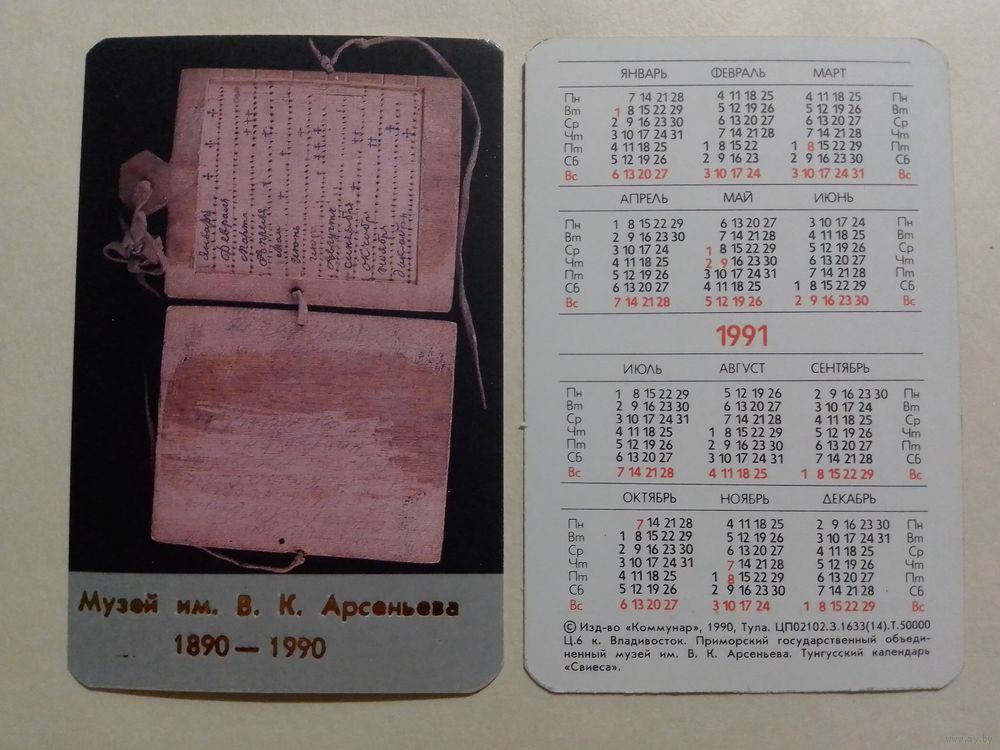 Январь
Февраль
Марта
Апрель
Май
Июнь
Августа
Музей им. В. К. Арсеньева
1890 — 1990
ЯНВАРЬ ФЕВРАЛЬ МАРТ
Пн 7 14 21 28 4 11 18 25 4 11 18 25 Пн
Вт 1 8 15 22 29 5 12 19 26 5 12 19 26 Вт
Ср 2 9 16 23 30 6 13 20 27 6 13 20 27 Ср
Чт 3 10 17 24 31 7 14 21 28 7 14 21 28 Чт
Пт 4 11 18 25 1 8 15 22 1 8 15 22 29 Пт
Сб 5 12 19 26 2 9 16 23 2 9 16 23 30 Сб
Вс 6 13 20 27 3 10 17 24 3 10 17 24 31 Вс
АПРЕЛЬ МАЙ ИЮНЬ
Пн 1 8 15 22 29 6 13 20 27 3 10 17 24 Пн
Вт 2 9 16 23 30 7 14 21 28 4 11 18 25 Вт
Ср 3 10 17 24 1 8 15 22 29 5 12 19 26 Ср
Чт 4 11 18 25 2 9 16 23 30 6 13 20 27 Чт
Пт 5 12 19 26 3 10 17 24 31 7 14 21 28 Пт
Сб 6 13 20 27 4 11 18 25 1 8 15 22 29 Сб
Вс 7 14 21 28 5 12 19 26 2 9 16 23 30 Вс
1991
ИЮЛЬ АВГУСТ СЕНТЯБРЬ
Пн 1 8 15 22 29 5 12 19 26 2 9 16 23 30 Пн
Вт 2 9 16 23 30 6 13 20 27 3 10 17 24 Вт
Ср 3 10 17 24 31 7 14 21 28 4 11 18 25 Ср
Чт 4 11 18 25 1 8 15 22 29 5 12 19 26 Чт
Пт 5 12 19 26 2 9 16 23 30 6 13 20 27 Пт
Сб 6 13 20 27 3 10 17 24 31 7 14 21 28 Сб
Вс 7 14 21 28 4 11 18 25 1 8 15 22 29 Вс
ОКТЯБРЬ НОЯБРЬ ДЕКАБРЬ
Пн 7 14 21 28 4 11 18 25 2 9 16 23 30 Пн
Вт 1 8 15 22 29 5 12 19 26 3 10 17 24 31 Вт
Ср 2 9 16 23 30 6 13 20 27 4 11 18 25 Ср
Чт 3 10 17 24 31 7 14 21 28 5 12 19 26 Чт
Пт 4 11 18 25 1 8 15 22 29 6 13 20 27 Пт
Сб 5 12 19 26 2 9 16 23 30 7 14 21 28 Сб
Вс 6 13 20 27 3 10 17 24 1 8 15 22 29 Вс
© Изд-во «Коммунар», 1990, Тула. ЦП02102.З.1633(14).Т.50000
Ц.6 к. Владивосток. Приморский государственный объеди-
ненный музей им. В. К. Арсеньева. Тунгусский календарь
«Свиеса».
www.ay.by